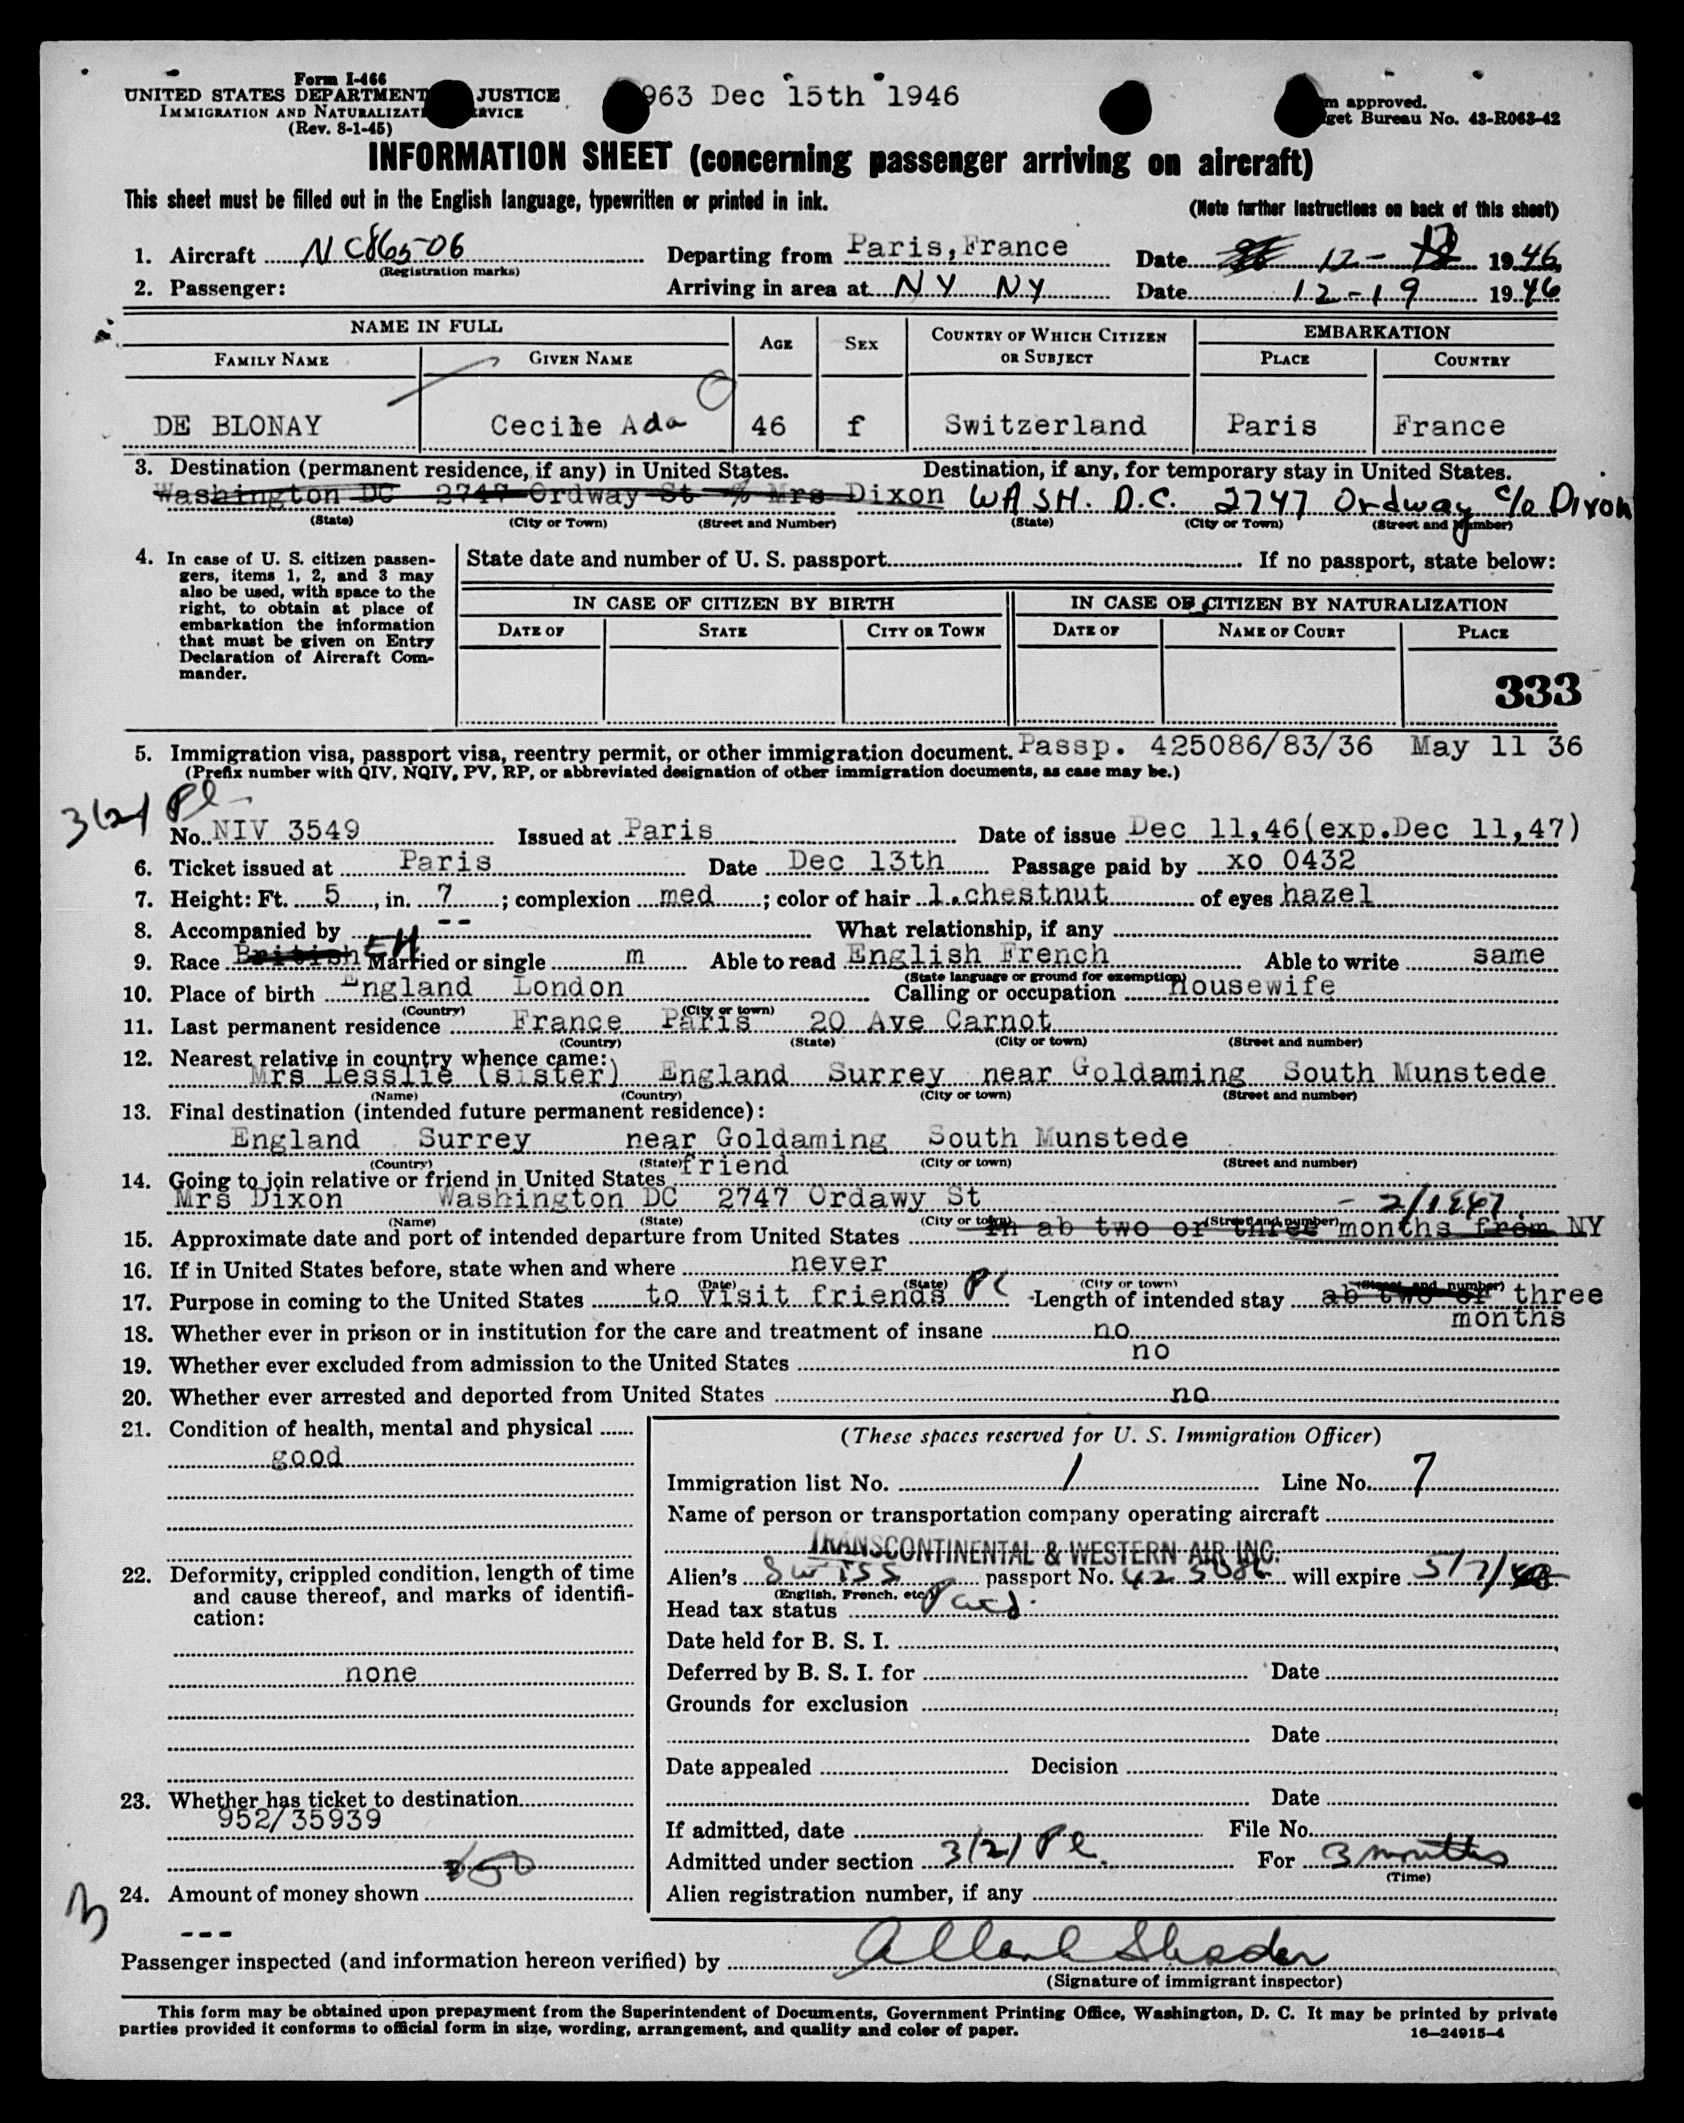 Form I-466
UNITED STATES DEPARTMENT JUSTICE
963 Dec 15th 1946
m approved.
IMMIGRATION AND NATURALIZAT RVICE
get Bureau No. 43-R063-42
(Rev. 8-1-45)
INFORMATION SHEET (concerning passenger arriving on aircraft)
This sheet must be filled out in the English language, typewritten or printed in ink.
(Note further instructions on back of this sheet)
1. Aircraft NC86506 Departing from Paris, France Date 12- 1946
(Registration marks)
2. Passenger: Arriving in area at NY NY Date 12-19 1946
NAME IN FULL AGE SEX COUNTRY OF WHICH CITIZEN OR SUBJECT EMBARKATION
FAMILY NAME GIVEN NAME PLACE COUNTRY
DE BLONAY Cecile Ada 46 f Switzerland Paris France
3. Destination (permanent residence, if any) in United States. Destination, if any, for temporary stay in United States.
Washington DC 2747 Ordway St % Mrs Dixon WASH. D.C. 2747 Ordway c/o Dixon
(State) (City or Town) (Street and Number) (State) (City or Town) (Street and Number)
4. In case of U. S. citizen passen-
gers, items 1, 2, and 3 may
also be used, with space to the
right, to obtain at place of
embarkation the information
that must be given on Entry
Declaration of Aircraft Com-
mander.
State date and number of U. S. passport If no passport, state below:
IN CASE OF CITIZEN BY BIRTH IN CASE OF CITIZEN BY NATURALIZATION
DATE OF STATE CITY OR TOWN DATE OF NAME OF COURT PLACE
333
5. Immigration visa, passport visa, reentry permit, or other immigration document. Passp. 425086/83/36 May 11 36
(Prefix number with QIV, NQIV, PV, RP, or abbreviated designation of other immigration documents, as case may be.)
3(2) Pl
No. NIV 3549 Issued at Paris Date of issue Dec 11,46(exp.Dec 11,47)
6. Ticket issued at Paris Date Dec 13th Passage paid by xo 0432
7. Height: Ft. 5, in. 7; complexion med; color of hair l.chestnut of eyes hazel
8. Accompanied by -- What relationship, if any
9. Race British Married or single m Able to read English French Able to write same
(State language or ground for exemption)
10. Place of birth England London Calling or occupation Housewife
(Country) (City or town)
11. Last permanent residence France Paris 20 Ave Carnot
(Country) (State) (City or town) (Street and number)
12. Nearest relative in country whence came:
Mrs Lesslie (sister) England Surrey near Goldaming South Munstede
(Name) (Country) (City or town) (Street and number)
13. Final destination (intended future permanent residence):
England Surrey near Goldaming South Munstede
(Country) (State) (City or town) (Street and number)
14. Going to join relative or friend in United States friend
Mrs Dixon Washington DC 2747 Ordawy St - 2/1947
(Name) (State) (City or town) (Street and number)
15. Approximate date and port of intended departure from United States in ab two or three months from NY
16. If in United States before, state when and where never
(Date) (State) (City or town) (Street and number)
17. Purpose in coming to the United States to visit friends Length of intended stay ab two or three
months
18. Whether ever in prison or in institution for the care and treatment of insane no
19. Whether ever excluded from admission to the United States no
20. Whether ever arrested and deported from United States no
21. Condition of health, mental and physical
good
22. Deformity, crippled condition, length of time
and cause thereof, and marks of identifi-
cation:
none
23. Whether has ticket to destination
952/35939
50
24. Amount of money shown
---
(These spaces reserved for U. S. Immigration Officer)
Immigration list No. 1 Line No. 7
Name of person or transportation company operating aircraft
TRANSCONTINENTAL & WESTERN AIR INC.
Alien's Swiss passport No. 425086 will expire 5/7/
(English, French, etc.)
Head tax status Paid
Date held for B. S. I.
Deferred by B. S. I. for Date
Grounds for exclusion
Date
Date appealed Decision
Date
If admitted, date File No.
Admitted under section 3(2) Pl. For 3 months
(Time)
Alien registration number, if any
Passenger inspected (and information hereon verified) by
(Signature of immigrant inspector)
This form may be obtained upon prepayment from the Superintendent of Documents, Government Printing Office, Washington, D. C. It may be printed by private
parties provided it conforms to official form in size, wording, arrangement, and quality and color of paper.
16—24915-4